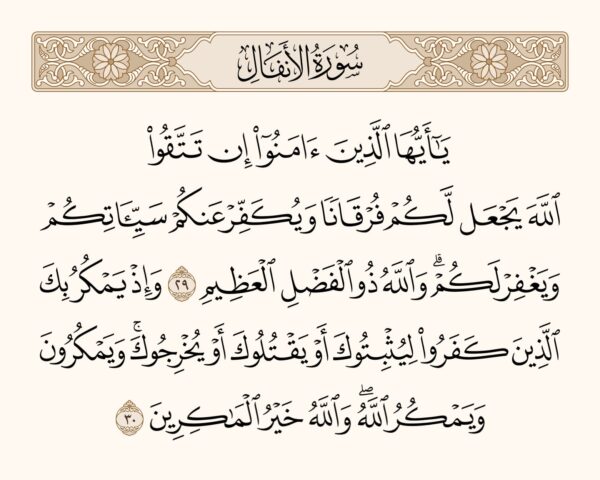 سُورَةُ الأَنفَالِ
يَـٰٓأَيُّهَا ٱلَّذِينَ ءَامَنُوٓا۟ إِن تَتَّقُوا۟
ٱللَّهَ يَجْعَل لَّكُمْ فُرْقَانًا وَيُكَفِّرْ عَنكُمْ سَيِّـَٔاتِكُمْ
وَيَغْفِرْ لَكُمْ ۗ وَٱللَّهُ ذُو ٱلْفَضْلِ ٱلْعَظِيمِ ٢٩ وَإِذْ يَمْكُرُ بِكَ
ٱلَّذِينَ كَفَرُوا۟ لِيُثْبِتُوكَ أَوْ يَقْتُلُوكَ أَوْ يُخْرِجُوكَ ۚ وَيَمْكُرُونَ
وَيَمْكُرُ ٱللَّهُ ۖ وَٱللَّهُ خَيْرُ ٱلْمَـٰكِرِينَ ٣٠